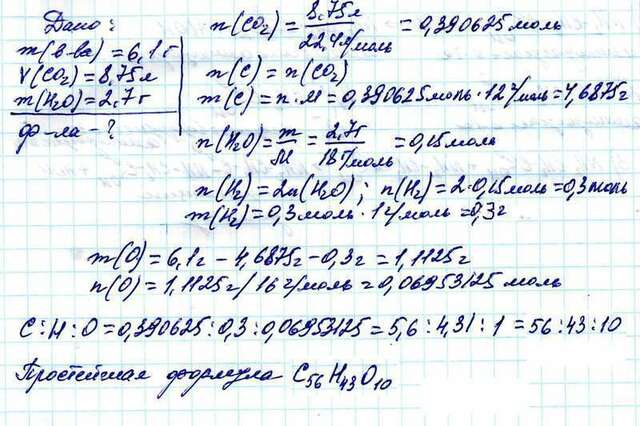 Дано:
m(в-ва) = 6,1 г
V(CO₂) = 8,75 л
m(H₂O) = 2,7 г
ф-ла - ?
n(CO₂) = 8,75л / 22,4 л/моль = 0,390625 моль
n(C) = n(CO₂)
m(C) = n · M = 0,390625 моль · 12 г/моль = 4,6875г
n(H₂O) = m/M = 2,7г / 18 г/моль = 0,15 моль
n(H₂) = 2n(H₂O); n(H₂) = 2·0,15 моль = 0,3 моль
m(H₂) = 0,3 моль · 1 г/моль = 0,3 г
m(O) = 6,1г - 4,6875г - 0,3 г = 1,1125 г
n(O) = 1,1125 г / 16 г/моль = 0,06953125 моль
C : H : O = 0,390625 : 0,3 : 0,06953125 = 5,6 : 4,31 : 1 = 56 : 43 : 10
Простейшая формула C₅₆H₄₃O₁₀